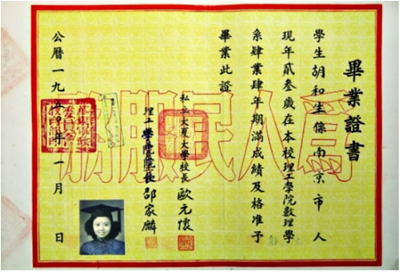 畢業證書
學生胡和生係南京市人
現年貳叁歲在本校理工學院數理學
系肄業肆年期滿成績及格准予
畢業此證
私立大夏大學校長 歐元懷
理工學院院長 邵家麟
公曆一九五〇年一月 日
為人民服務